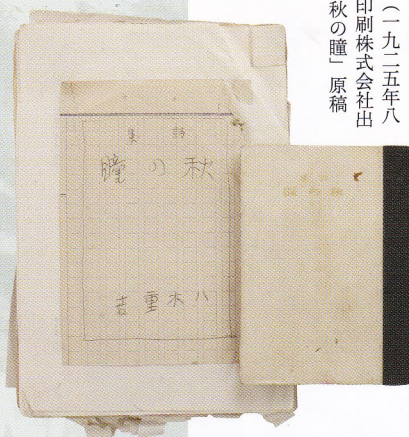 （一九二五年八
印刷株式会社出
秋の瞳」原稿
詩集
秋の瞳
八木重吉
秋の瞳